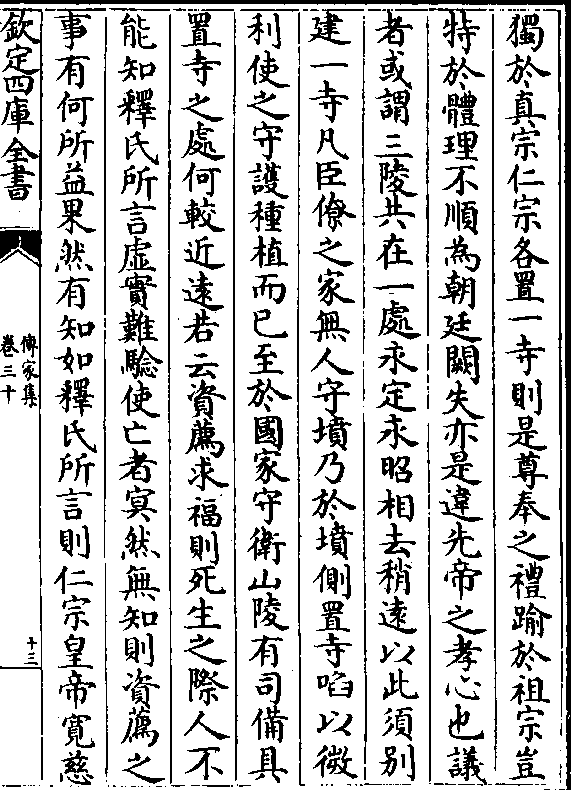 獨於真宗仁宗各置一寺則是尊奉之禮踰於祖宗豈
特於體理不順為朝廷闕失亦是違先帝之孝心也議
者或謂三陵共在一處永定永昭相去稍遠以此須別
建一寺凡臣僚之家無人守墳乃於墳側置寺啗以微
利使之守護種植而已至於國家守衛山陵有司備具
置寺之處何較近遠若云資薦求福則死生之際人不
能知釋氏所言虛實難驗使亡者冥然無知則資薦之
事有何所益果然有知如釋氏所言則仁宗皇帝寬慈
欽定四庫全書
傳家集
卷三十
十三